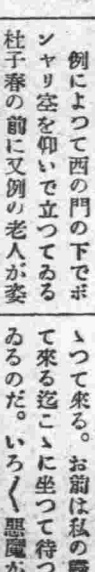 例によつて西の門の下でボ
ンヤリ空を仰いで立つてゐる
杜子春の前に又例の老人が姿
ゝつて來る。お前は私の
て來る迄こゝに坐つて待つ
ゐるのだ。いろ〳〵惡魔が